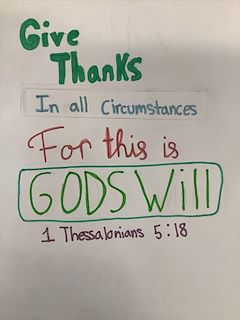 Give
Thanks
In all Circumstances
For this is
GODS Will
1 Thessalonians 5:18